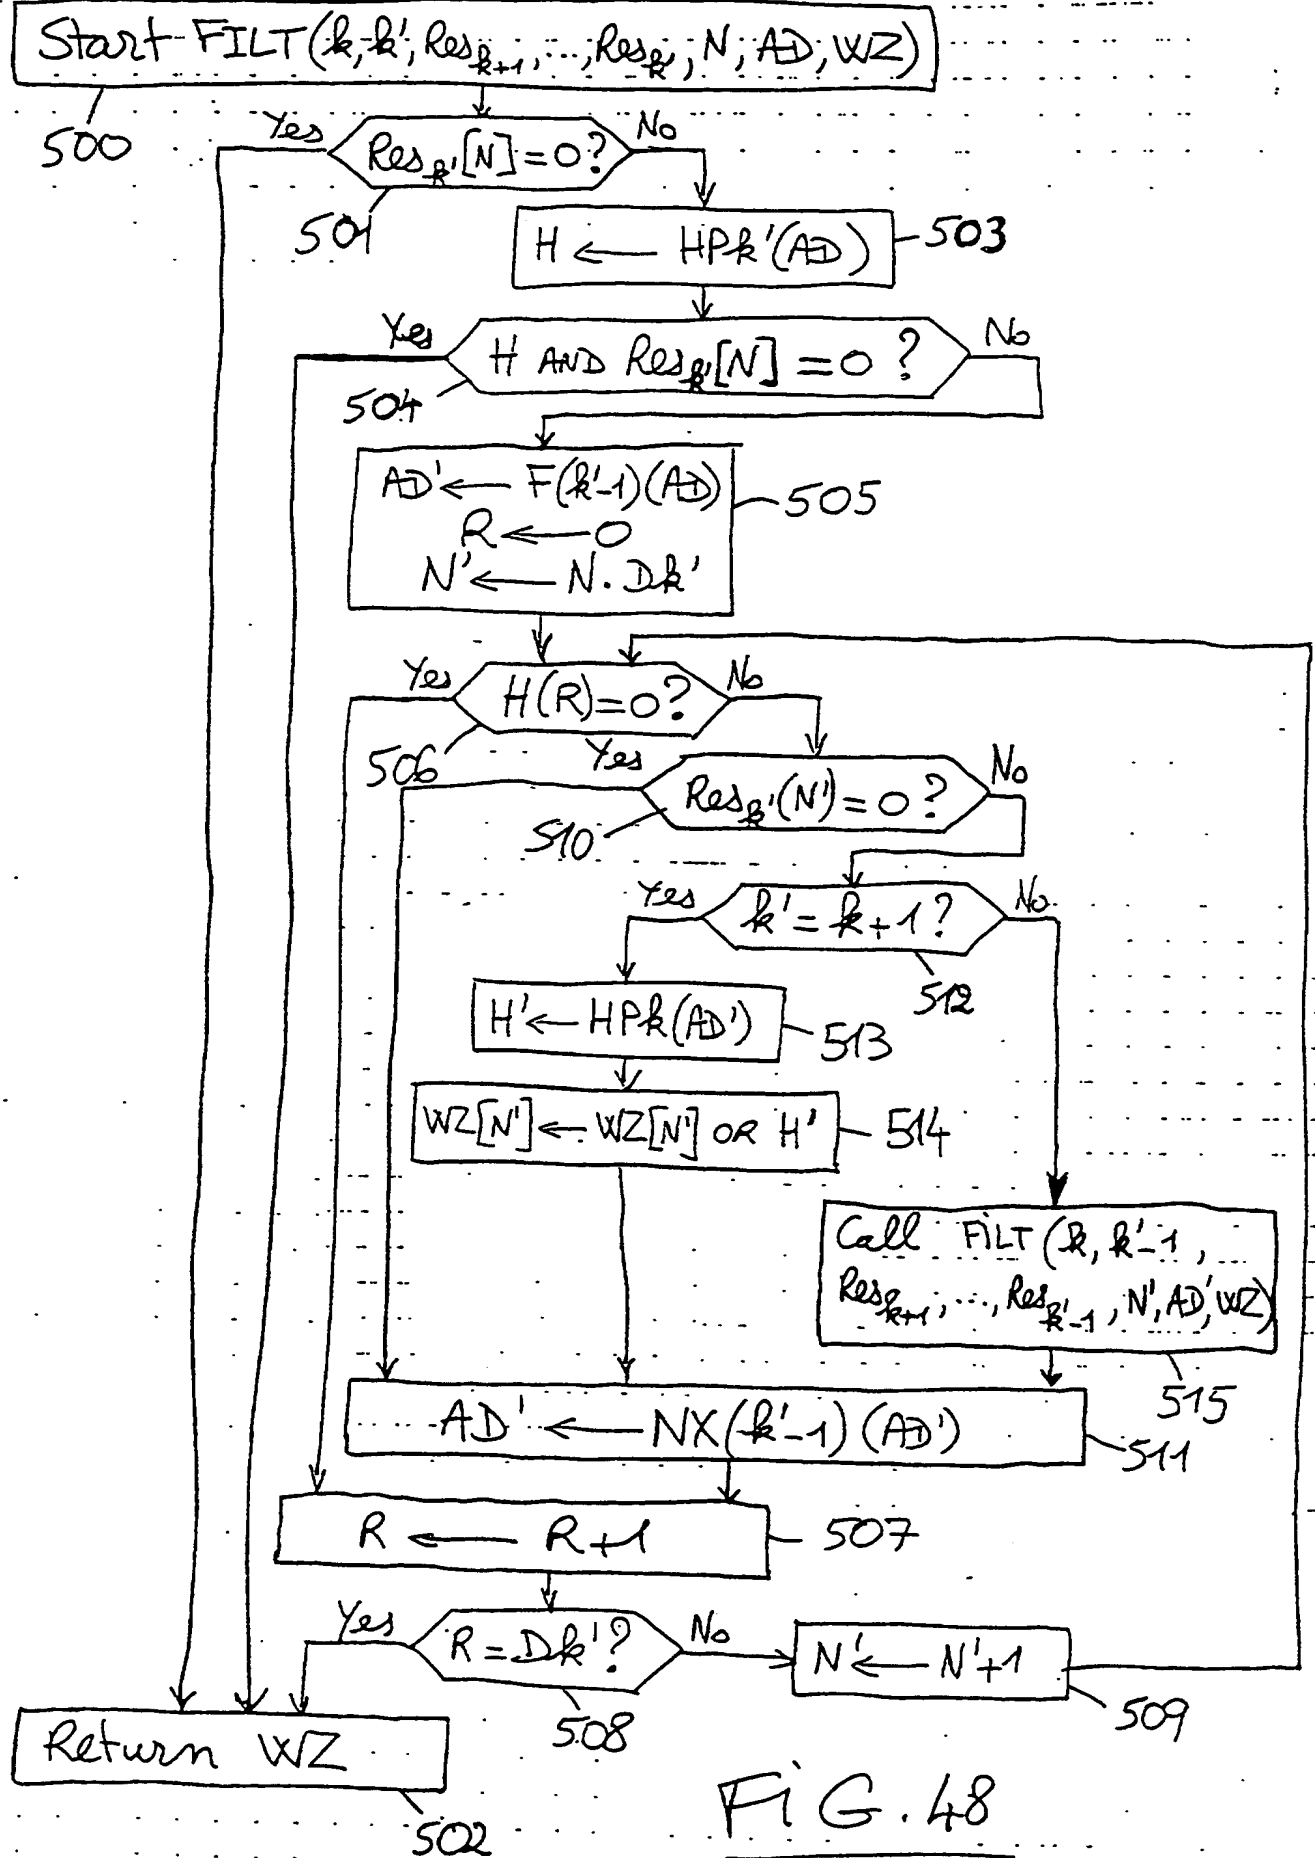 Start FILT(k,k',Res_{k+1},...,Res_{k'},N,AD,WZ)
500
Yes
Res_{k'}[N]=0?
No
501
H ← HPk'(AD)
503
Yes
H AND Res_{k'}[N]=0?
No
504
AD' ← F(k'-1)(AD)
R ← 0
N' ← N.Dk'
505
Yes
H(R)=0?
No
506
Yes
Res_{k'}(N')=0?
No
510
Yes
k'=k+1?
No
512
H' ← HPk(AD')
513
WZ[N'] ← WZ[N'] OR H'
514
Call FILT(k,k'-1,
Res_{k+1},...,Res_{k'-1},N',AD',WZ)
515
AD' ← NX(k'-1)(AD')
511
R ← R+1
507
Yes
R=Dk'?
No
N' ← N'+1
508
509
Return WZ
502
FIG.48